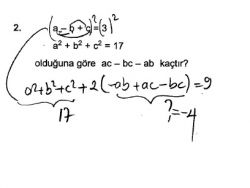 2. (a - b + c)² = (3)²
a² + b² + c² = 17
olduğuna göre ac – bc – ab kaçtır?
a²+b²+c²+2(-ab+ac-bc)=9
17 ?=-4